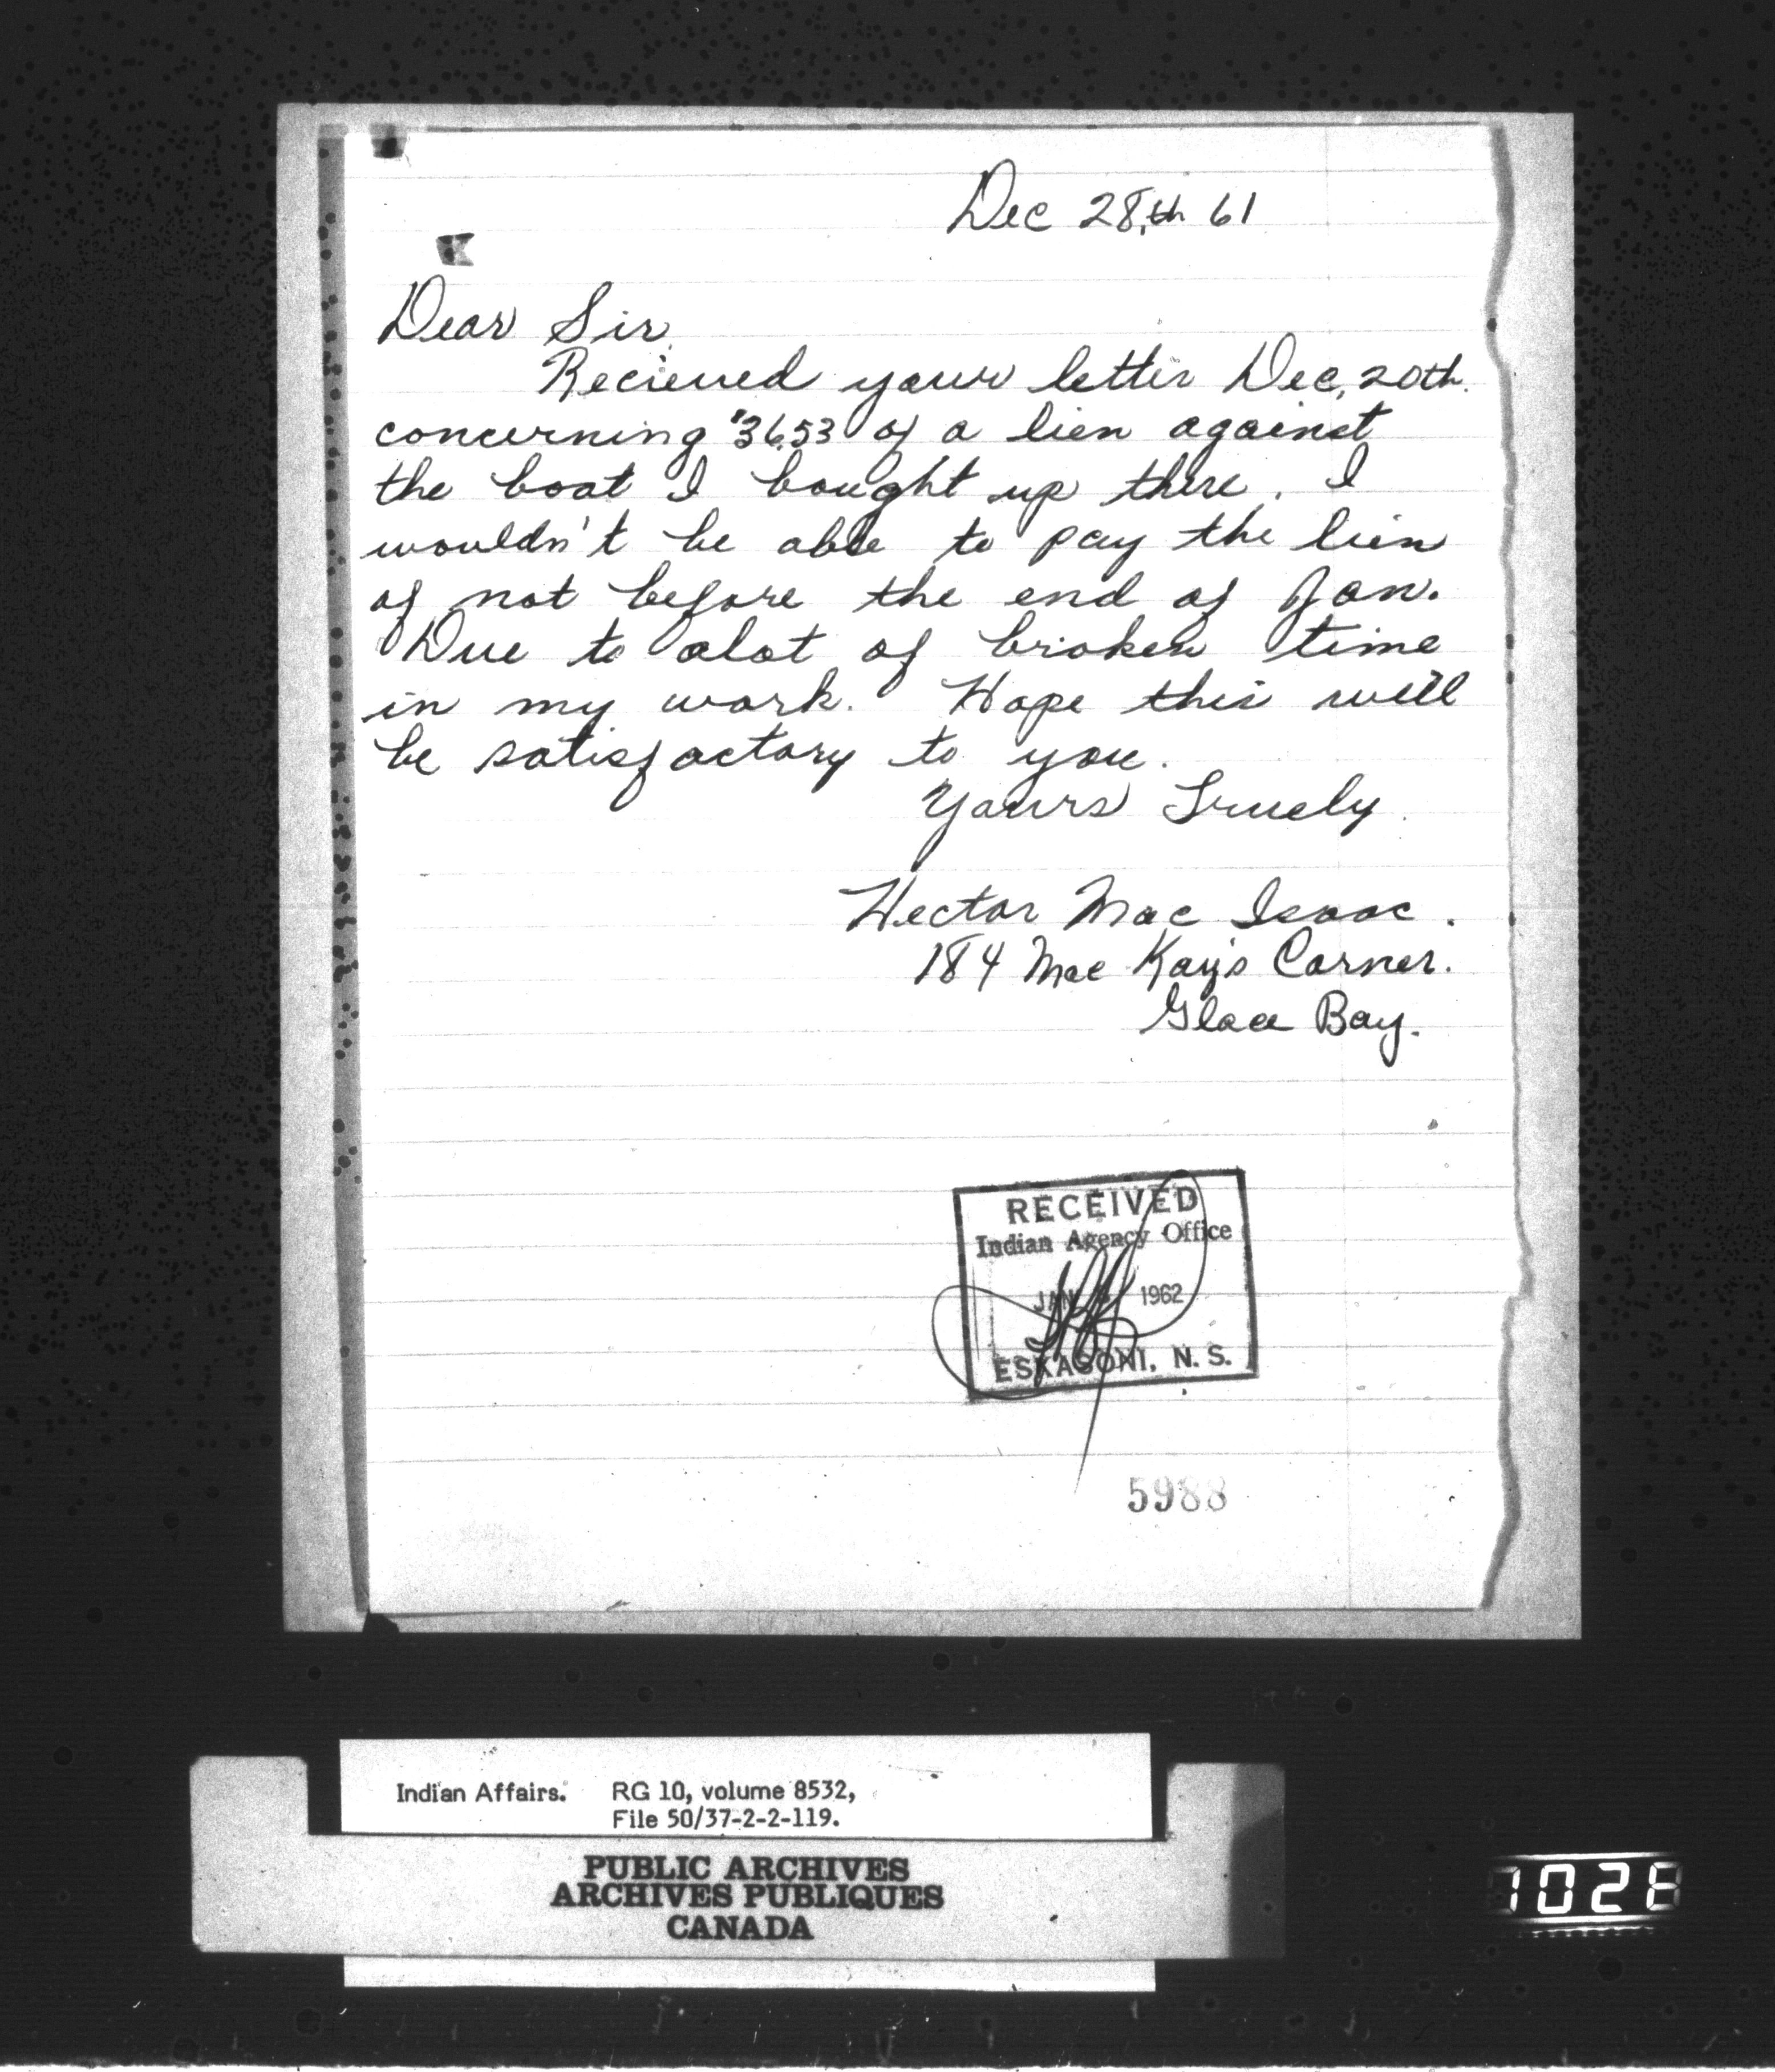 Dec 28,th 61
Dear Sir,
Recieved your letter Dec, 20th.
concerning $36.53 of a lien against
the boat I bought up there. I
wouldn't be able to pay the lien
of not before the end of Jan.
Due to alot of broken time
in my work. Hope this will
be satisfactory to you.
Yours Truely.
Hector Mac Isaac.
184 Mac Kay's Corner.
Glace Bay.
RECEIVED
Indian Agency Office
JAN 1962
ESKASONI, N. S.
5988
Indian Affairs. RG 10, volume 8532,
File 50/37-2-2-119.
PUBLIC ARCHIVES
ARCHIVES PUBLIQUES
CANADA